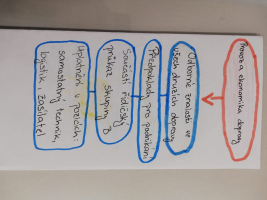 Provoz a ekonomika dopravy
Odborné znalosti ve
všech druzích dopravy
Předpoklady pro podnikání
Součástí řidičský
průkaz skupiny B
Uplatnění v pozicích:
samostatný technik,
logistik, zasílatel